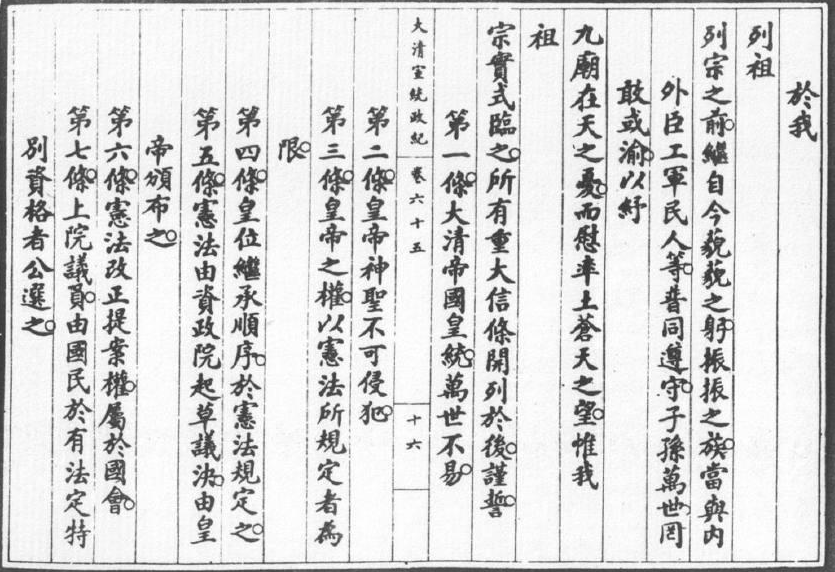 於我
列祖
列宗之前。繼自今藐藐之躬。振振之族。當與內
外臣工軍民人等。普同遵守。子孫萬世。罔
敢或渝。以紓
九廟在天之憂。而慰率土蒼天之望。惟我
祖
宗實式臨之。所有重大信條開列於後。謹誓。
第一條。大清帝國皇統。萬世不易。
大清宣統政紀 卷六十五 十六
第二條。皇帝神聖不可侵犯。
第三條。皇帝之權。以憲法所規定者為
限。
第四條。皇位繼承順序。於憲法規定之。
第五條。憲法由資政院起草議決。由皇
帝頒布之。
第六條。憲法改正提案權。屬於國會。
第七條。上院議員。由國民於有法定特
別資格者公選之。